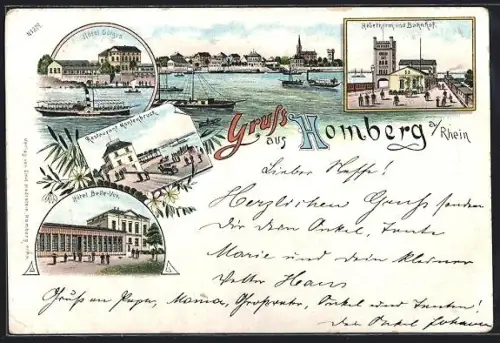 Hôtel Dülgen
Hebethurm und Bahnhof.
Restaurant Kantenbruch
Gruss
aus
Homberg a/Rhein
Hôtel Belle-Vue.
Lieber Neffe!
Herzlichen Gruss senden
Dir dein Onkel, Tante
Marie und dein kleiner
Vetter Hans
Gruss an Papa, Mama, Grossvater, Onkel und Tanten!
Dein Onkel Johann